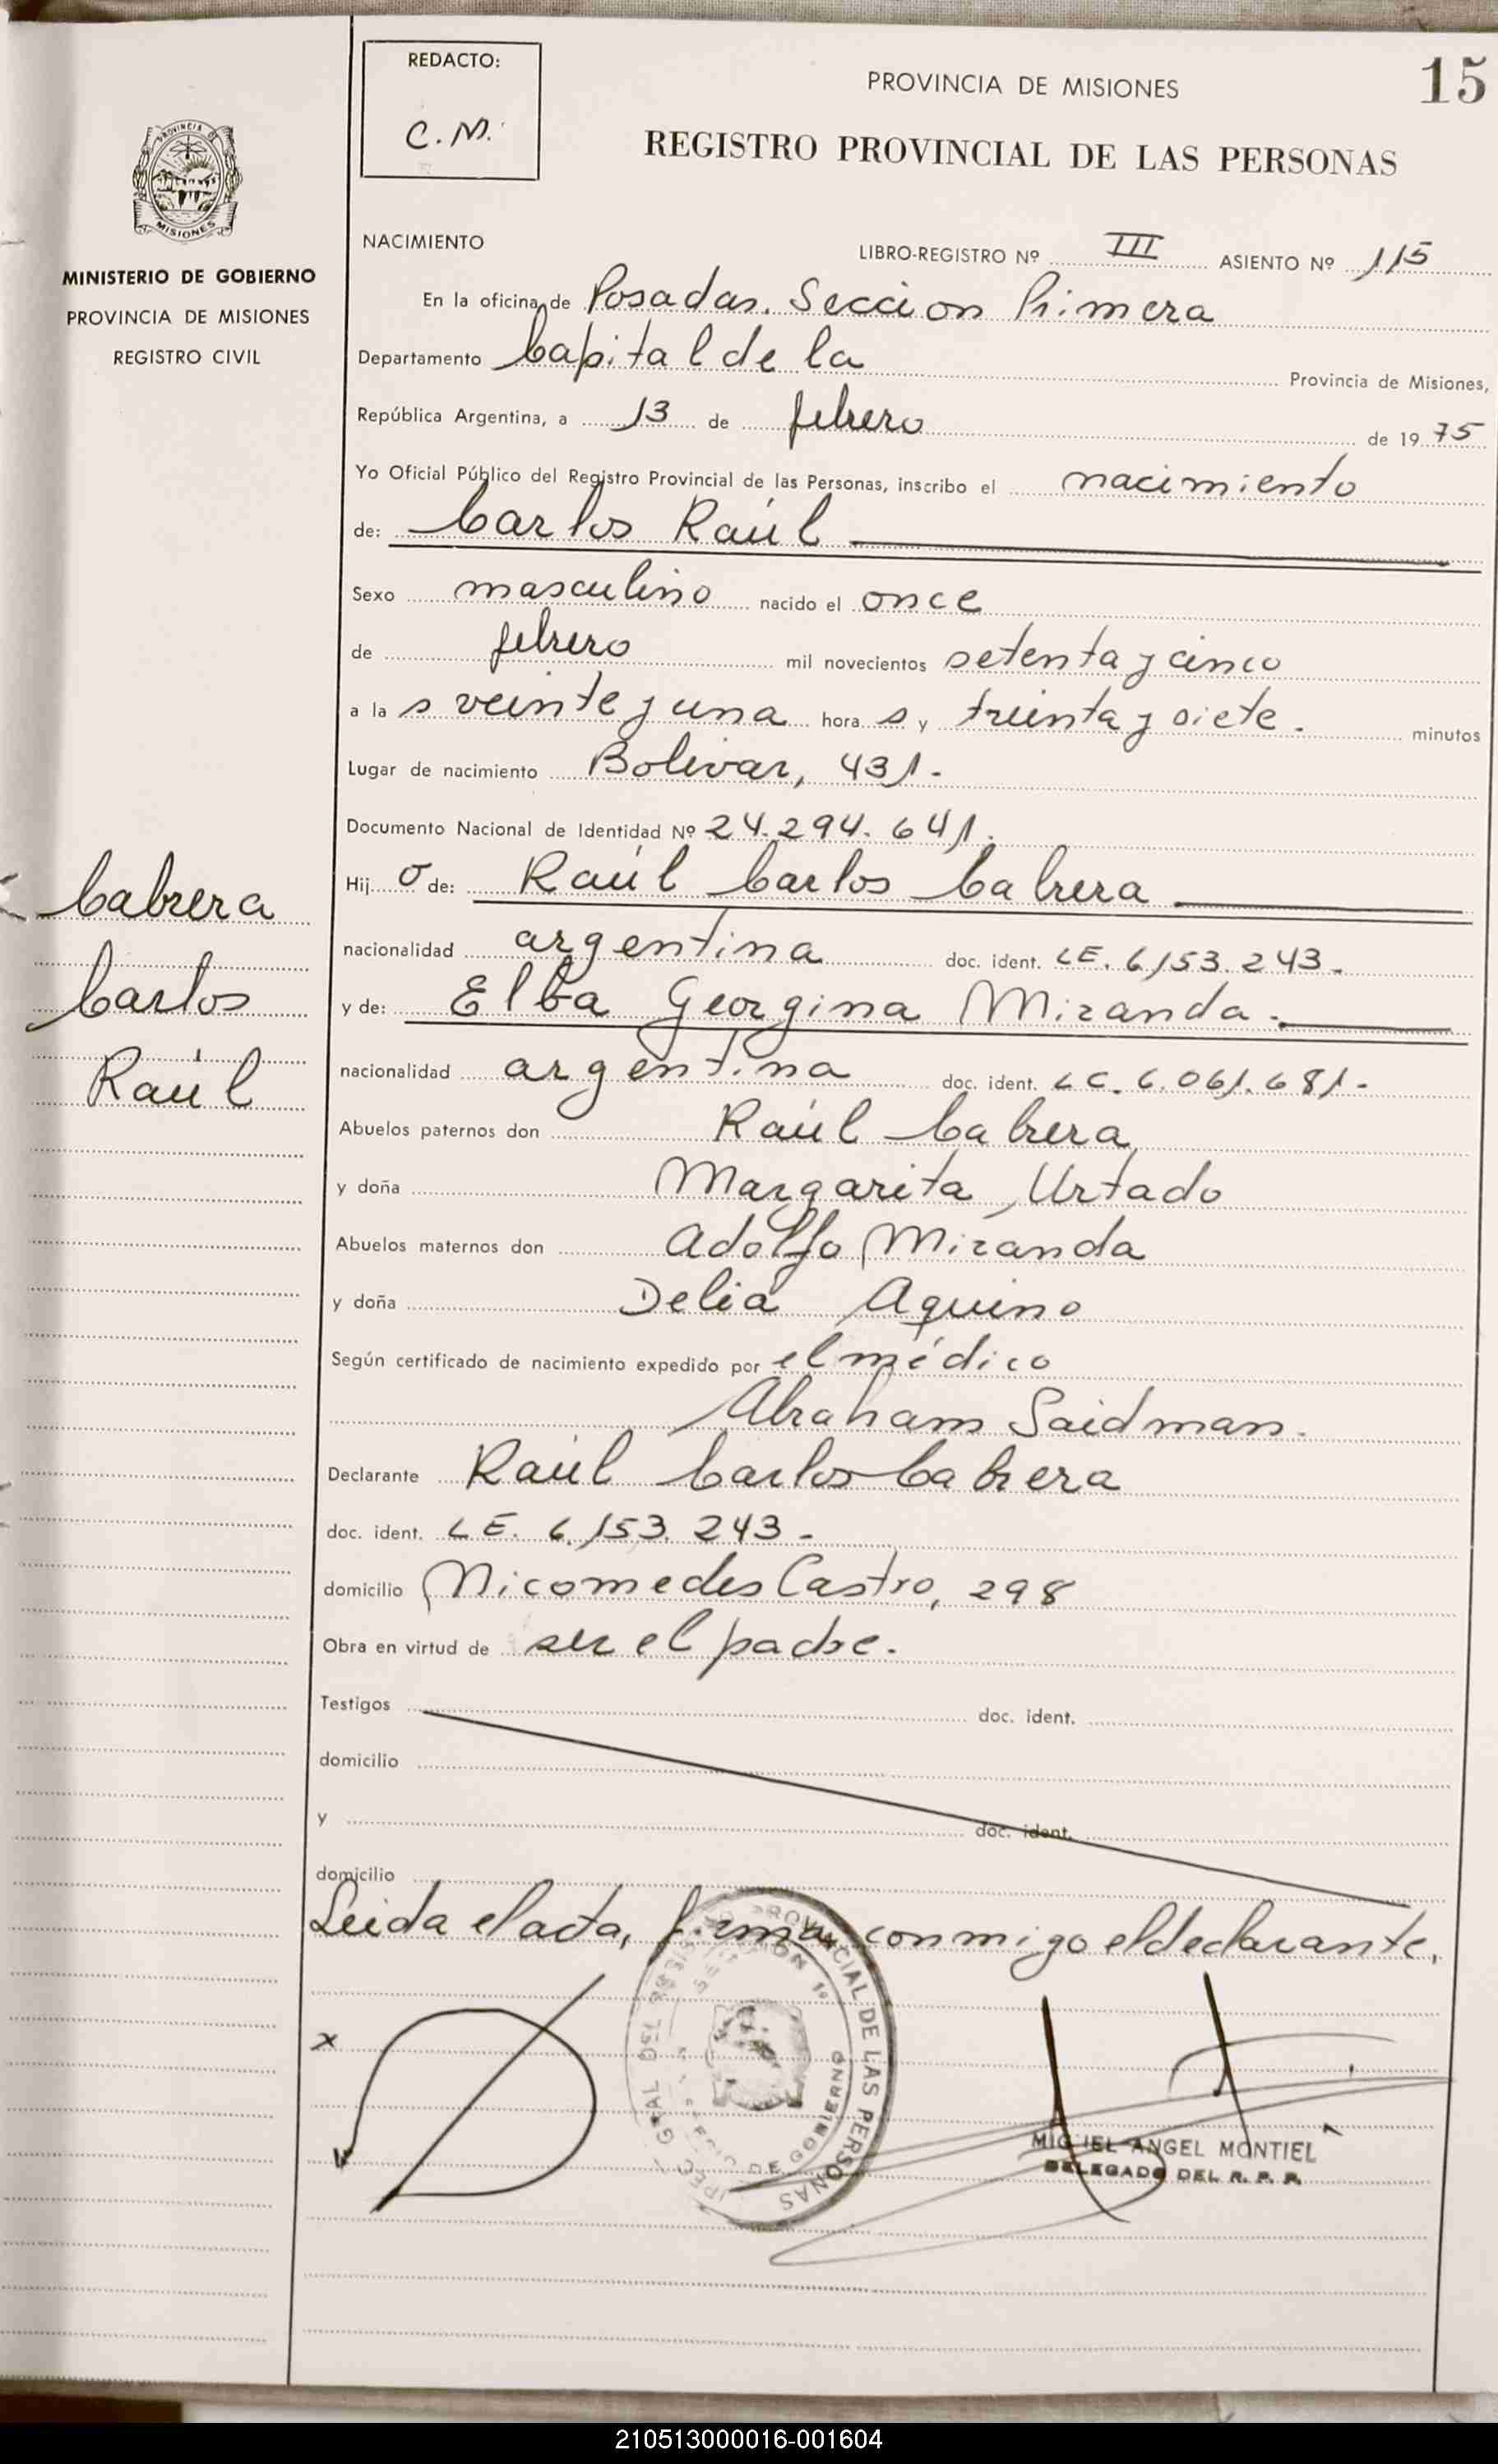 REDACTO:
C.M.
PROVINCIA DE MISIONES
15
REGISTRO PROVINCIAL DE LAS PERSONAS
PROVINCIA DE
MISIONES
MINISTERIO DE GOBIERNO
PROVINCIA DE MISIONES
REGISTRO CIVIL
NACIMIENTO
LIBRO-REGISTRO Nº III ASIENTO Nº 115
En la oficina de Posadas. Seccion Primera
Departamento Capital de la Provincia de Misiones,
República Argentina, a 13 de febrero de 1975
Yo Oficial Público del Registro Provincial de las Personas, inscribo el nacimiento
de: Carlos Raúl
Sexo masculino nacido el once
de febrero mil novecientos setenta y cinco
a la s veinte y una hora s y treinta y siete. minutos
Lugar de nacimiento Bolivar, 431.
Documento Nacional de Identidad Nº 24.294.641.
Cabrera
Carlos
Raúl
Hij o de: Raúl Carlos Cabrera
nacionalidad argentina doc. ident. LE. 6.153.243.
y de: Elba Georgina Miranda.
nacionalidad argentina doc. ident. LC. 6.061.681.
Abuelos paternos don Raúl Cabrera
y doña Margarita Urtado
Abuelos maternos don Adolfo Miranda
y doña Delia Aquino
Según certificado de nacimiento expedido por el médico
Abraham Saidman.
Declarante Raúl Carlos Cabrera
doc. ident. LE. 6.153.243.
domicilio Nicomedes Castro, 298
Obra en virtud de ser el padre.
Testigos doc. ident.
domicilio
y doc. ident.
domicilio
Leida el acta, firma conmigo el declarante.
x
PROVINCIAL DE LAS PERSONAS
DE GOBIERNO
MIGUEL ANGEL MONTIEL
DELEGADO DEL R. P. P.
210513000016-001604